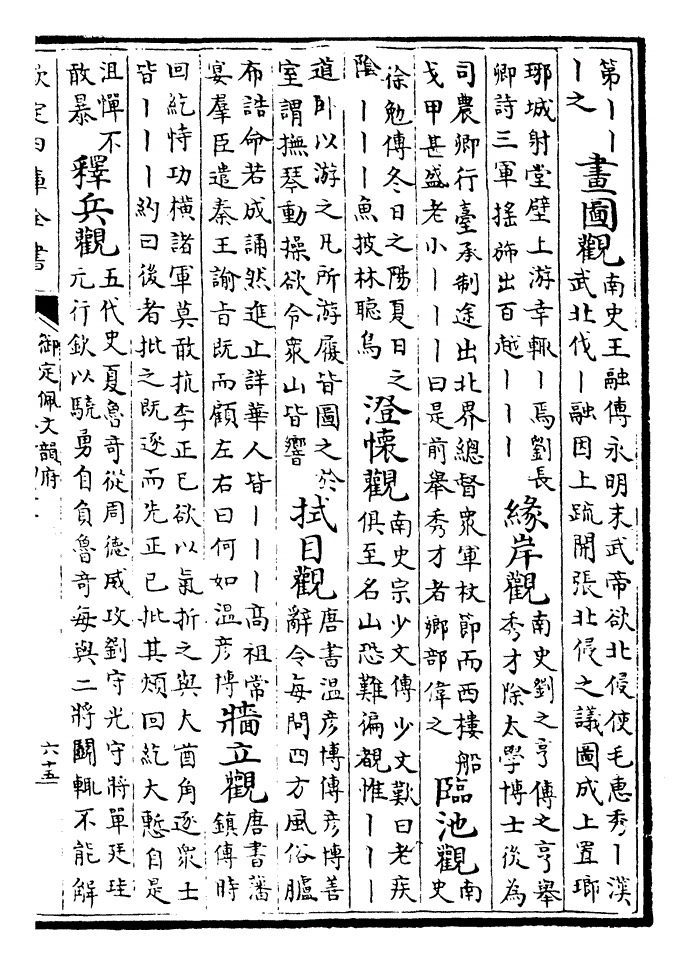 第｜｜
｜之
畫圖觀
南史王融傳永明末武帝欲北侵使毛惠秀｜漢
武北伐｜融因上疏開張北侵之議圖成上置瑯
琊城射堂壁上游幸輒｜焉劉長
卿詩三軍搖旆出百越｜｜｜
緣岸觀
南史劉之亨傳之亨舉
秀才除太學博士後為
司農卿行臺承制途出北界總督衆軍杖節而西樓船
戈甲甚盛老小｜｜｜曰是前舉秀才者鄉部偉之
臨池觀
南
史
徐勉傳冬日之陽夏日之
陰｜｜｜魚披林聽鳥
澄懷觀
南史宗少文傳少文歎曰老疾
俱至名山恐難徧覩惟｜｜｜
道卧以游之凡所游履皆圖之於
室謂撫琴動操欲令衆山皆響
拭目觀
唐書溫彦博傳彦博善
辭令每問四方風俗臚
布誥命若成誦然進止詳華人皆｜｜｜高祖常
宴羣臣遣秦王諭旨既而顧左右曰何如溫彦博
牆立觀
唐書藩
鎮傳時
回紇恃功橫諸軍莫敢抗李正已欲以氣折之與大酋角逐衆士
皆｜｜｜約曰後者批之既逐而先正已批其煩回紇大慙自是
沮憚不
敢暴
釋兵觀
五代史夏魯奇從周德威攻劉守光守將單廷珪
元行欽以驍勇自負魯奇每與二將鬬輒不能解
欽定四庫全書
御定佩文韻府
六十五